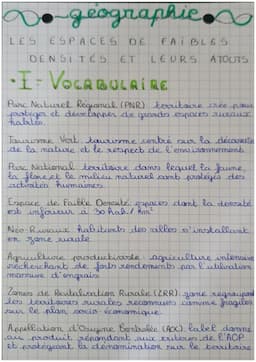 géographie
LES ESPACES DE FAIBLES
DENSITÉS ET LEURS ATOUTS
I - VOCABULAIRE
Parc Naturel Régional (PNR) territoire créé pour
protéger et développer de grands espaces ruraux
habités.
Tourisme Vert tourisme centré sur la découverte
de la nature et le respect de l'environnement
Parc National territoire dans lequel la faune,
la flore et le milieu naturel sont protégés des
activités humaines
Espace de Faible Densité espaces dont la densité
est inférieur à 30 hab / km²
Néo-Ruraux habitants des villes s'installant
en zone rurale
Agriculture productiviste agriculture intensive
recherchant de forts rendements par l'utilisation
massive d'engrais
Zones de Revitalisation Rurale (ZRR) zone regroupant
les territoires ruraux reconnues comme fragiles
sur le plan socio-économique
Appellation d'Origine Contrôlée (AOC) label donné
au produit répondant aux critères de l'AOP
et protégeant la dénomination sur le territoire